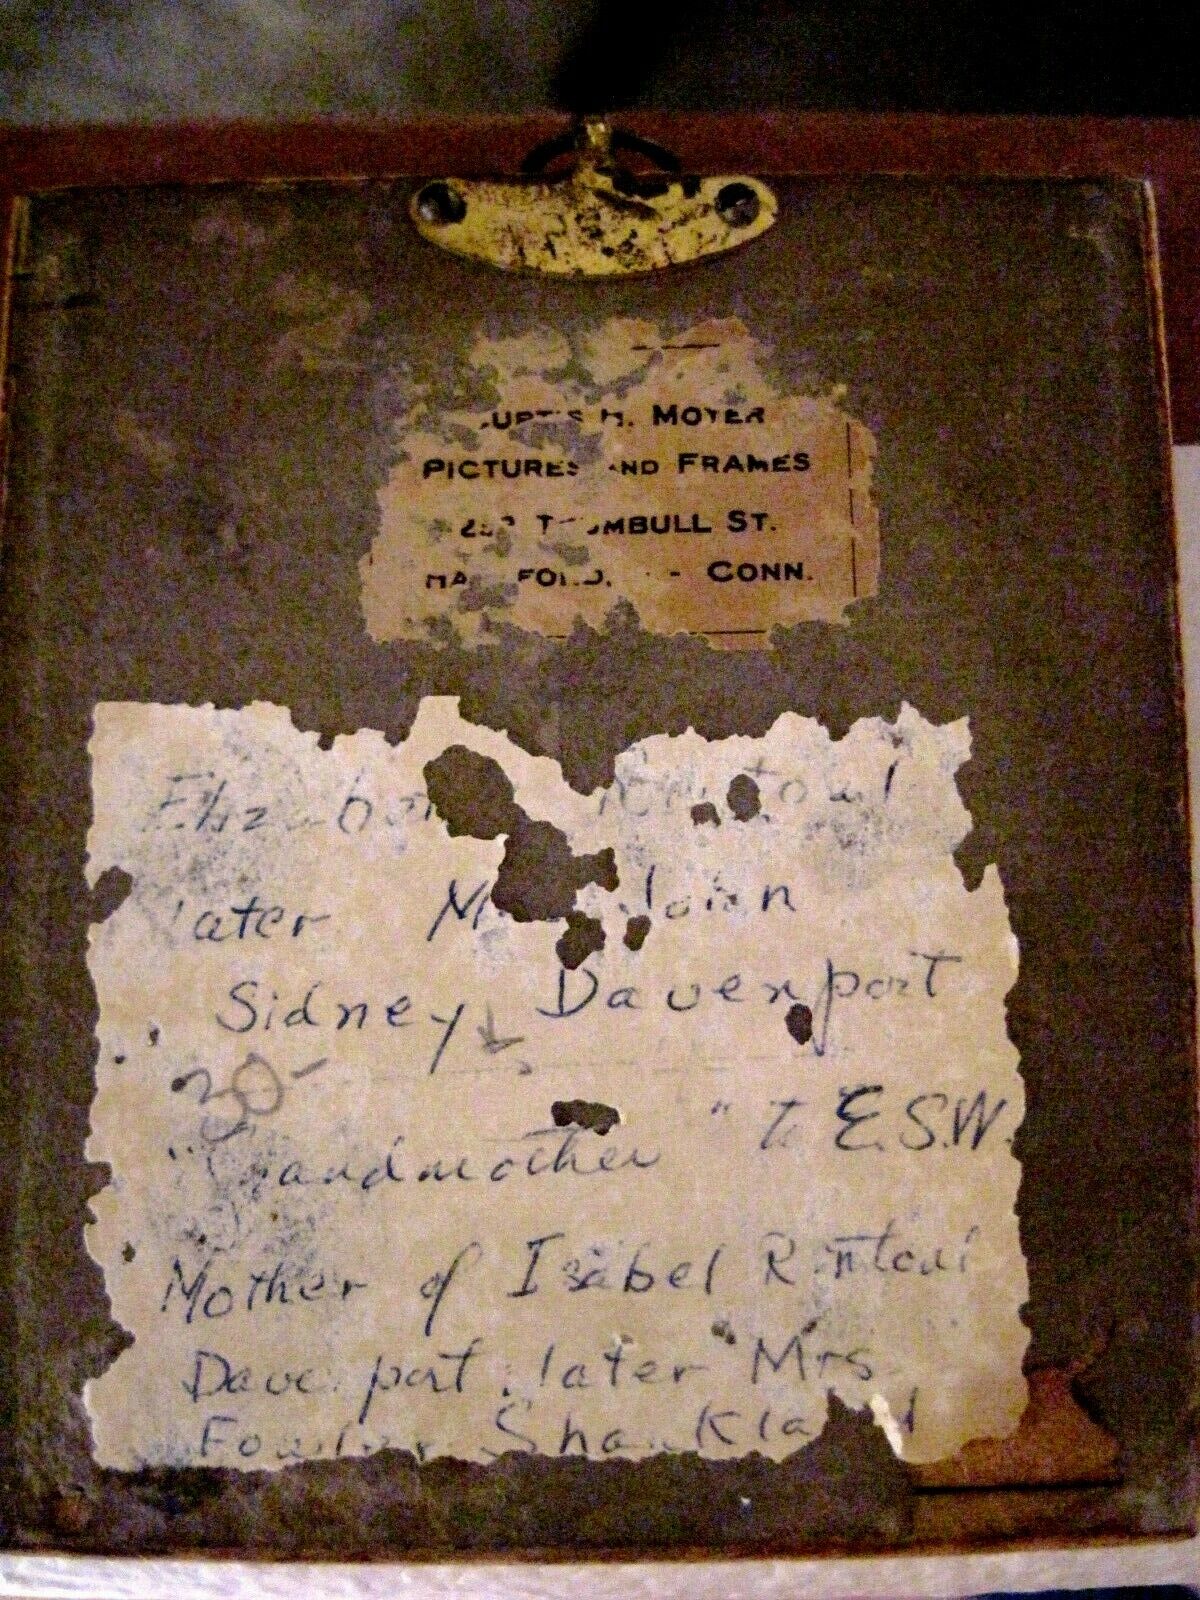 H. MOYER
PICTURES AND FRAMES
TRUMBULL ST.
HARTFORD, - CONN.
later John
Sidney Davenport
30-
"Grandmother" to E.S.W.
Mother of Isabel Rintoul
Davenport, later Mrs
Fowler Shankland